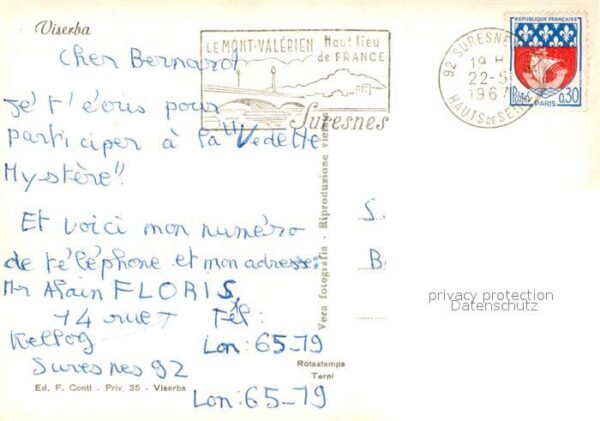 Viserba
LE MONT-VALÉRIEN Haut lieu
de FRANCE
Suresnes
92 SURESNES
19 H
22-5
1967
HAUTS DE SEINE
REPUBLIQUE FRANÇAISE
Postes 0,30
PARIS
Cher Bernard
Je t'écris pour
participer à la "Vedette
Mystère".
Et voici mon numéro
de téléphone et mon adresse:
Mr Alain FLORIS,
14 rue T Tél:
Kellog Lon: 65-79
Suresnes 92
Lon: 65-79
S
B
privacy protection
Datenschutz
Vera fotografia - Riproduzione vietata
Rotastampa
Terni
Ed. F. Conti - Priv. 35 - Viserba